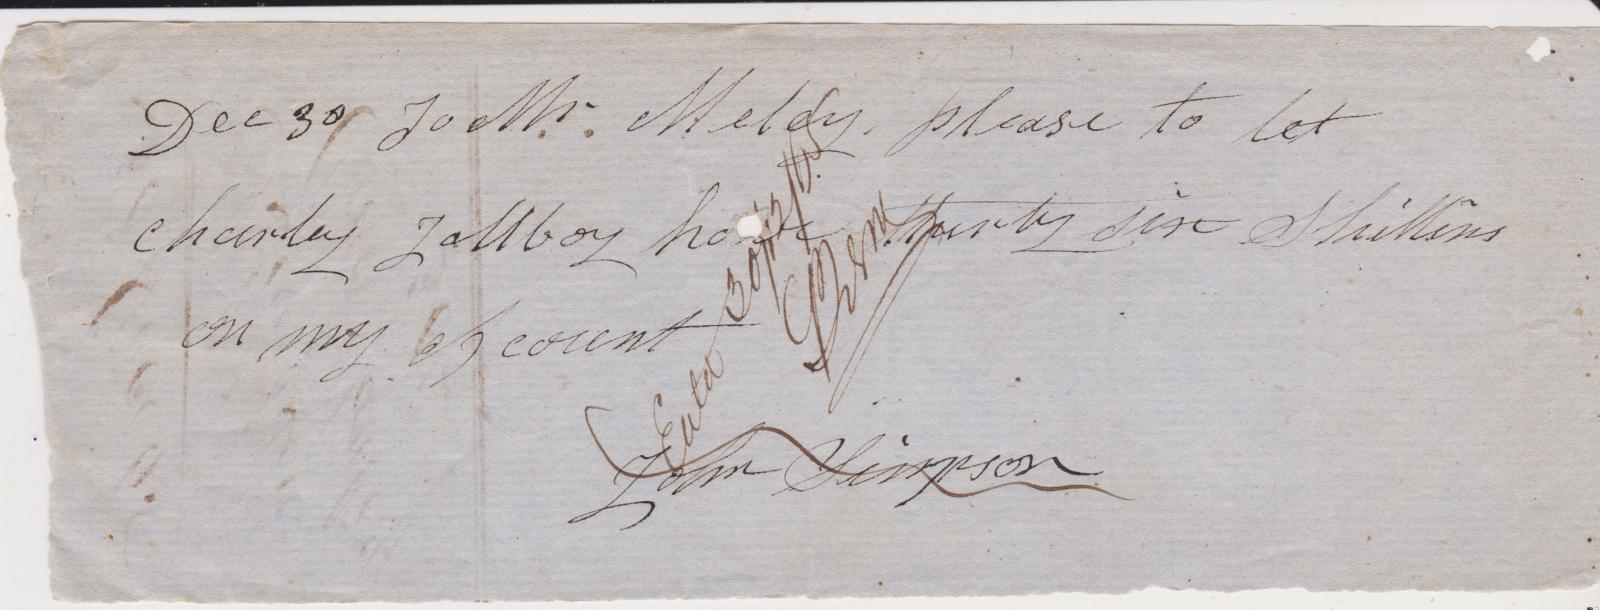 Dec 30 To Mr. Meldy. please to let
charley Tallboy have thirty six Shillins
on my account
John Simpson
Entd 30/12/